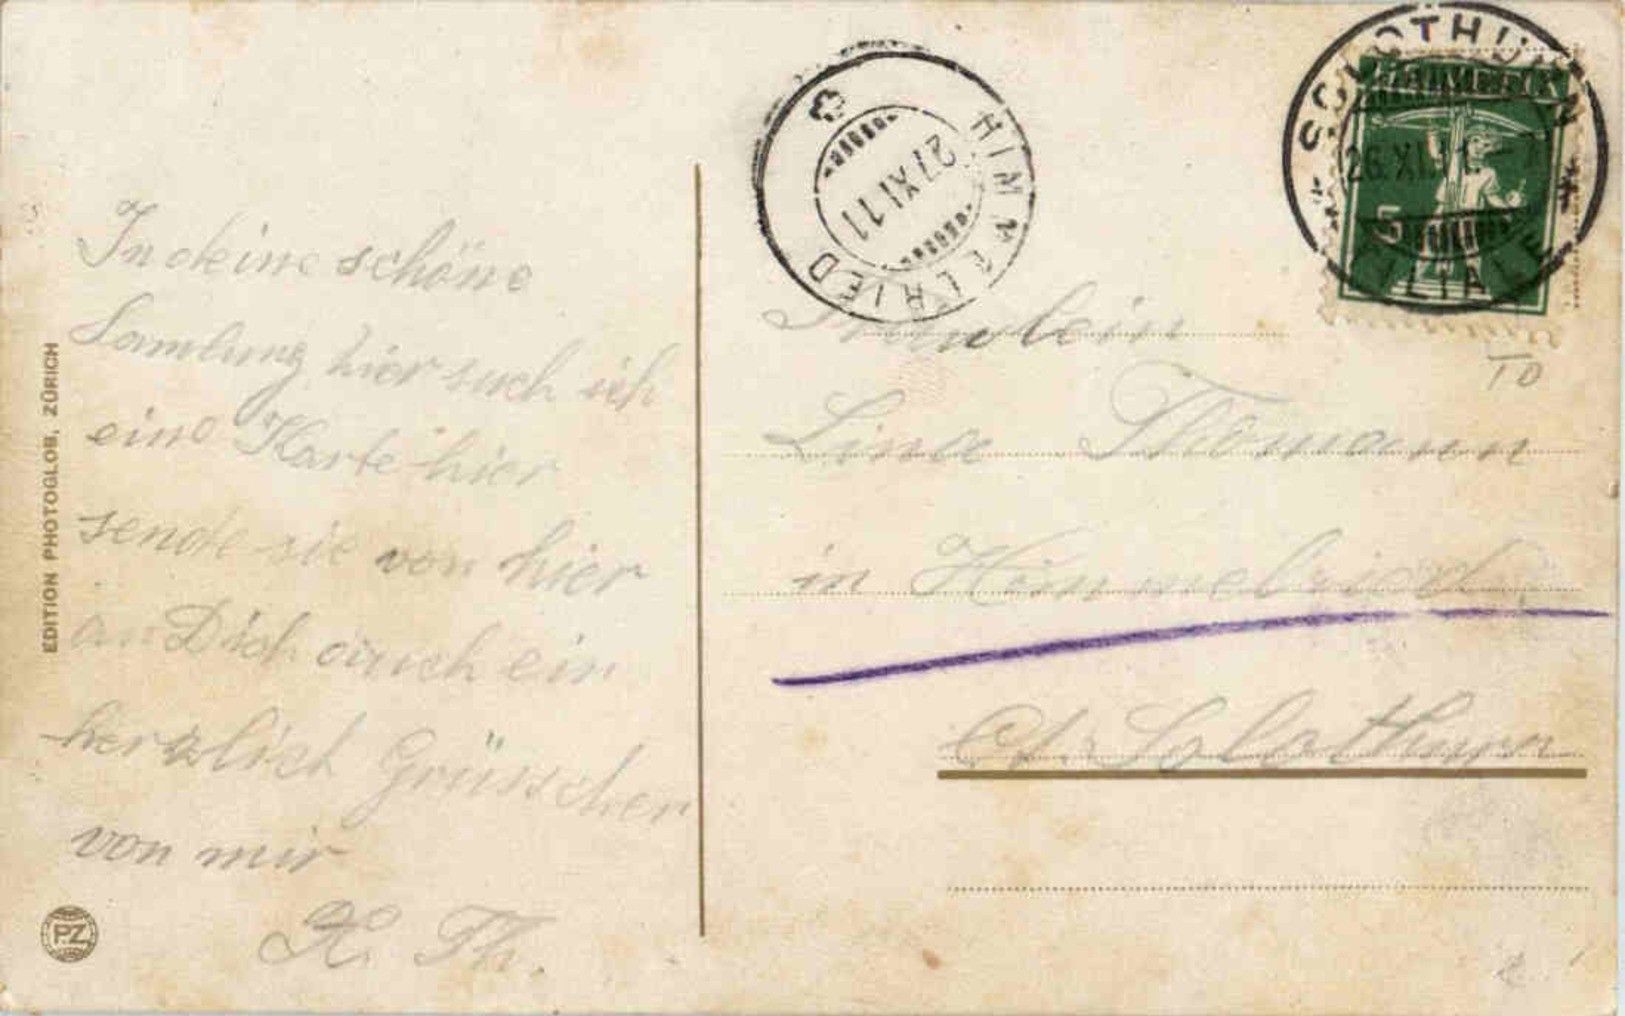 In deine schöne
Samlung hier such ich
eine Karte hier
sende sie von hier
an Dich auch ein
herzlich Grüsschen
von mir
K. Th.
EDITION PHOTOGLOB, ZÜRICH
PZ
HIMMELRIED
27 XI 11
SOLOTHURN
26.XI.11.
FILIALE
5
TD
Fräulein
Lina Thomann
in Himmelried
Ct. Solothurn